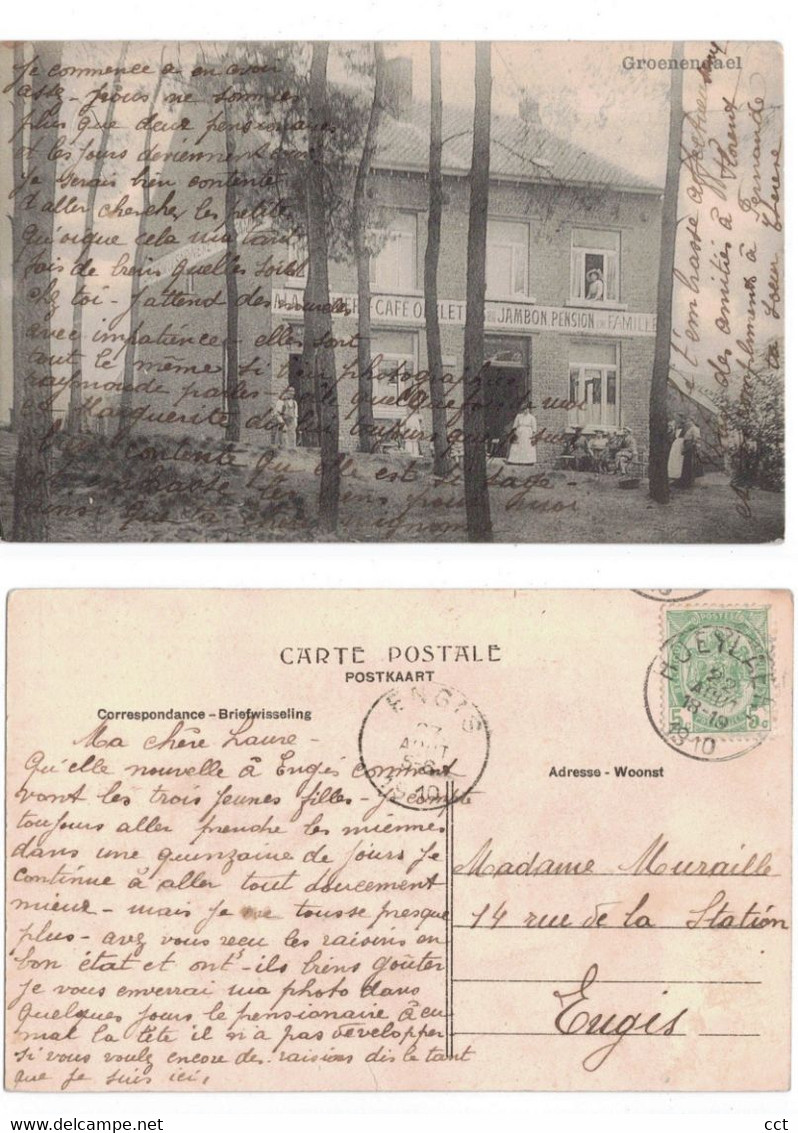 Groenendael
Je commence a en avoir
assez - nous ne sommes
plus que deux pensionaires
et les jours deviennent
Je serais bien contente
d'aller chercher les petite
qu'oique cela ma tant
fais de bien quelles soient
chez toi - J'attend des nouvelles
avec impatience - elles sont
tout le même si bien photographiée
raymonde parles-t-elle quelquefois de moi
et Marguerite dis lui toujours que je suis
contente qu'elle est si sage -
embrasse les biens pour moi
ainsi que ta
t'embrasse affectueusement
des amitiés à Mr Florent
compliments à Fernande
ta soeur
CAFÉ OMELETTE AU JAMBON PENSION DE FAMILLE
CARTE POSTALE
POSTKAART
Correspondance - Briefwisseling
Adresse - Woonst
ENGIS
27
AOUT
5-6
10
HOEYLAERT
22
AOUT
18-19
1910
POSTES
5 c 5 c
Ma chère Laure -
Qu'elle nouvelle à Engis comment
vont les trois jeunes filles - Je compte
toujours aller prendre les miennes
dans une quinzaine de jours Je
continue à aller tout doucement
mieux - mais je ne tousse presque
plus - avez vous reçu les raisins en
bon état et ont-ils biens goûter
Je vous enverrai ma photo dans
quelques jours le pensionaire à eu
mal la tête il n'a pas développer
si vous voulez encore des raisins dis le tant
que je suis ici,
Madame Muraille
14 rue de la Station
Engis
cct